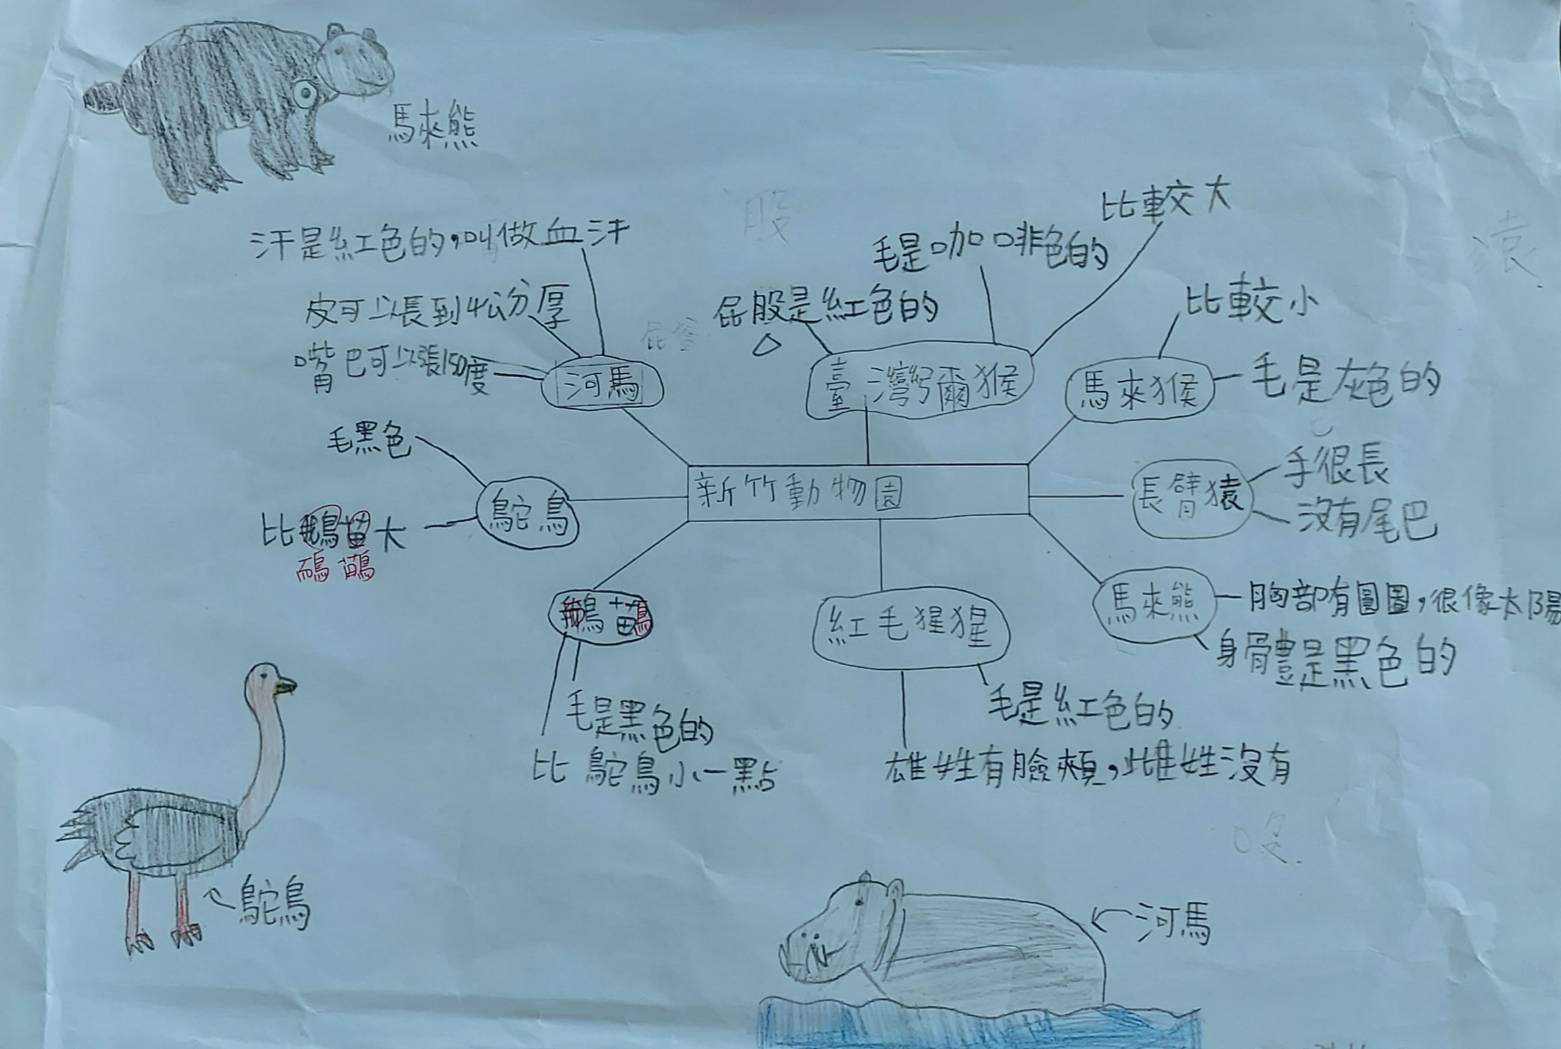 馬來熊
比較大
汗是紅色的，叫做血汗
毛是咖啡色的
屁股是紅色的
皮可以長到4公分厚
比較小
嘴巴可以張150度
河馬
臺灣獼猴
馬來猴
毛是灰色的
毛黑色
手很長
新竹動物園
長臂猿
鴕鳥
沒有尾巴
大
紅毛猩猩
馬來熊
胸部有圓圈，很像太陽
身體是黑色的
毛是黑色的
毛是紅色的
比鴕鳥小一點
雄姓有臉頰，雌姓沒有
鴕鳥
河馬